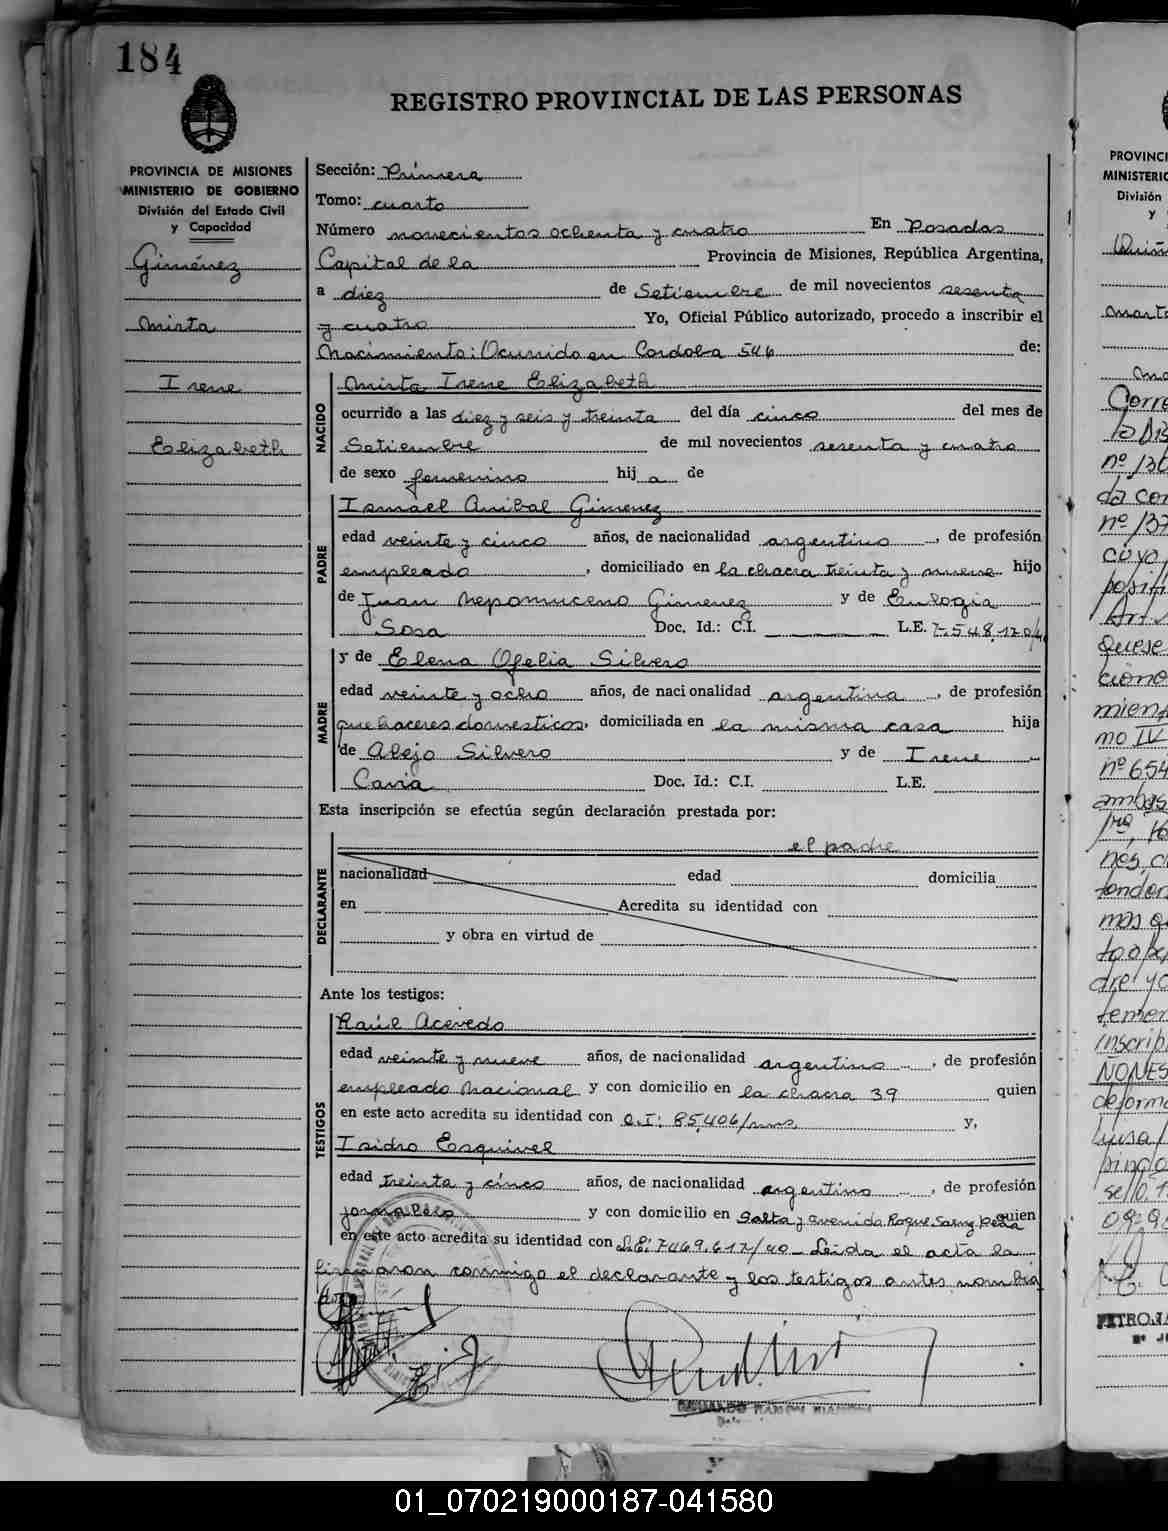 184
REGISTRO PROVINCIAL DE LAS PERSONAS
PROVINCIA DE MISIONES
MINISTERIO DE GOBIERNO
División del Estado Civil
y Capacidad
Giménez
Mirta
Irene
Elizabeth
Sección: Primera
Tomo: cuarto
Número novecientos ochenta y cuatro En Posadas
Capital de la Provincia de Misiones, República Argentina,
a diez de Setiembre de mil novecientos sesenta
y cuatro Yo, Oficial Público autorizado, procedo a inscribir el
Nacimiento: Ocurrido en Cordoba 546 de:
NACIDO
Mirta Irene Elizabeth
ocurrido a las diez y seis y treinta del día cinco del mes de
Setiembre de mil novecientos sesenta y cuatro
de sexo femenino hij a de
PADRE
Ismael Anibal Gimenez
edad veinte y cinco años, de nacionalidad argentino, de profesión
empleado, domiciliado en la chacra treinta y nueve hijo
de Juan Nepomuceno Gimenez y de Eulogia
Sosa Doc. Id.: C.I. L.E. 7.548.120/
MADRE
y de Elena Ofelia Silvero
edad veinte y ocho años, de nacionalidad argentina, de profesión
quehaceres domesticos, domiciliada en la misma casa hija
de Alejo Silvero y de Irene
Cavia Doc. Id.: C.I. L.E.
Esta inscripción se efectúa según declaración prestada por:
DECLARANTE
el padre
nacionalidad edad domicilia
en Acredita su identidad con
y obra en virtud de
Ante los testigos:
TESTIGOS
Raúl Acevedo
edad veinte y nueve años, de nacionalidad argentino, de profesión
empleado Nacional y con domicilio en la chacra 39 quien
en este acto acredita su identidad con C.I: 85.406/mns. y,
Isidro Esquivel
edad treinta y cinco años, de nacionalidad argentino, de profesión
jornalero y con domicilio en Salta y avenida Roque Saenz Peña quien
en este acto acredita su identidad con L.E: 7469.617/40 - Leida el acta la
firmaron conmigo el declarante y los testigos antes nombra
dos
RAMON
PROVINCI
MINISTERIO
División
y
Quiñ
Marta
Corre
la Dis
da con
cuyo
mient
mo IV
nº 654
ambas
nes,
mas
inscrip
ÑONES
de forma
Luisa
PETRONA
01_070219000187-041580